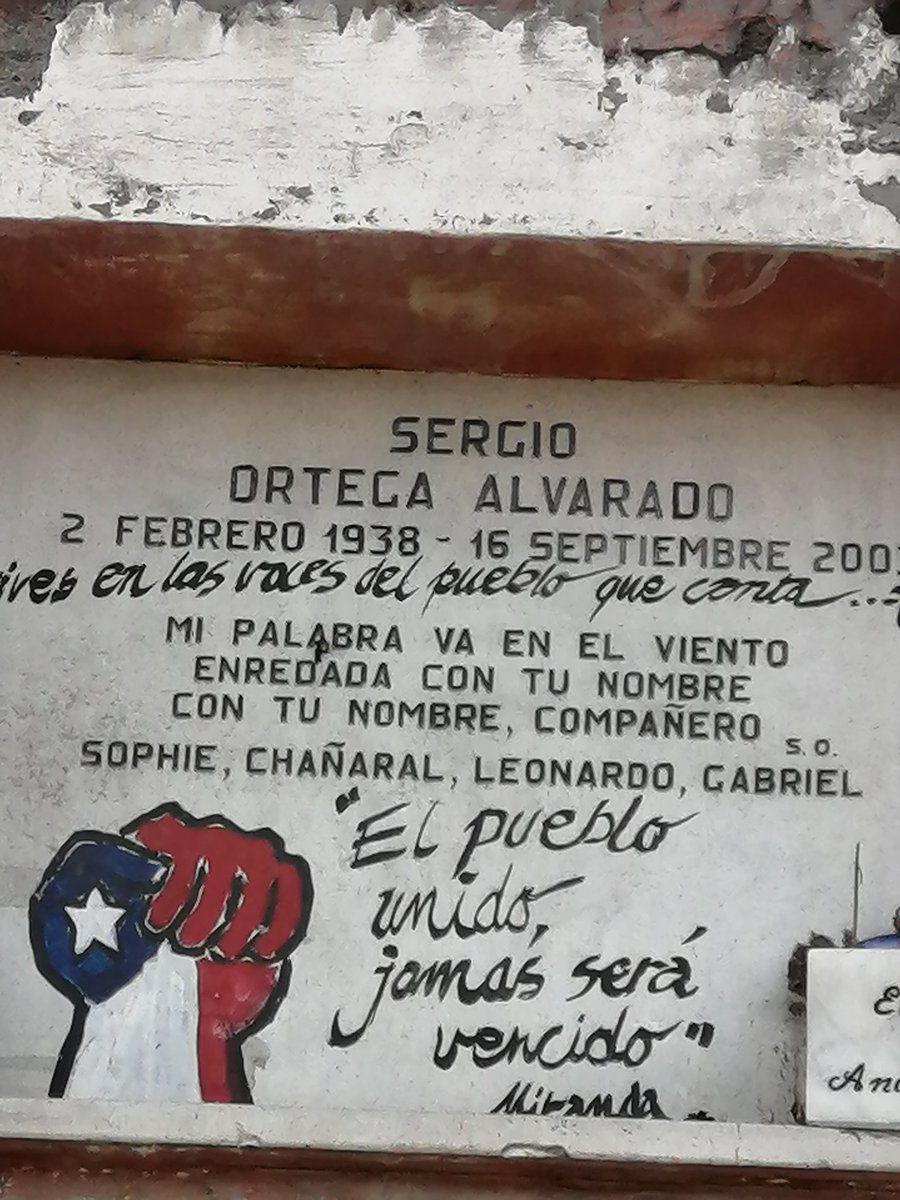 SERGIO
ORTEGA ALVARADO
2 FEBRERO 1938 - 16 SEPTIEMBRE 2003
en las voces del pueblo que canta...
MI PALABRA VA EN EL VIENTO
ENREDADA CON TU NOMBRE
CON TU NOMBRE, COMPAÑERO
S. O.
SOPHIE, CHAÑARAL, LEONARDO, GABRIEL
"El pueblo
unido,
jamás será
vencido"
Miranda